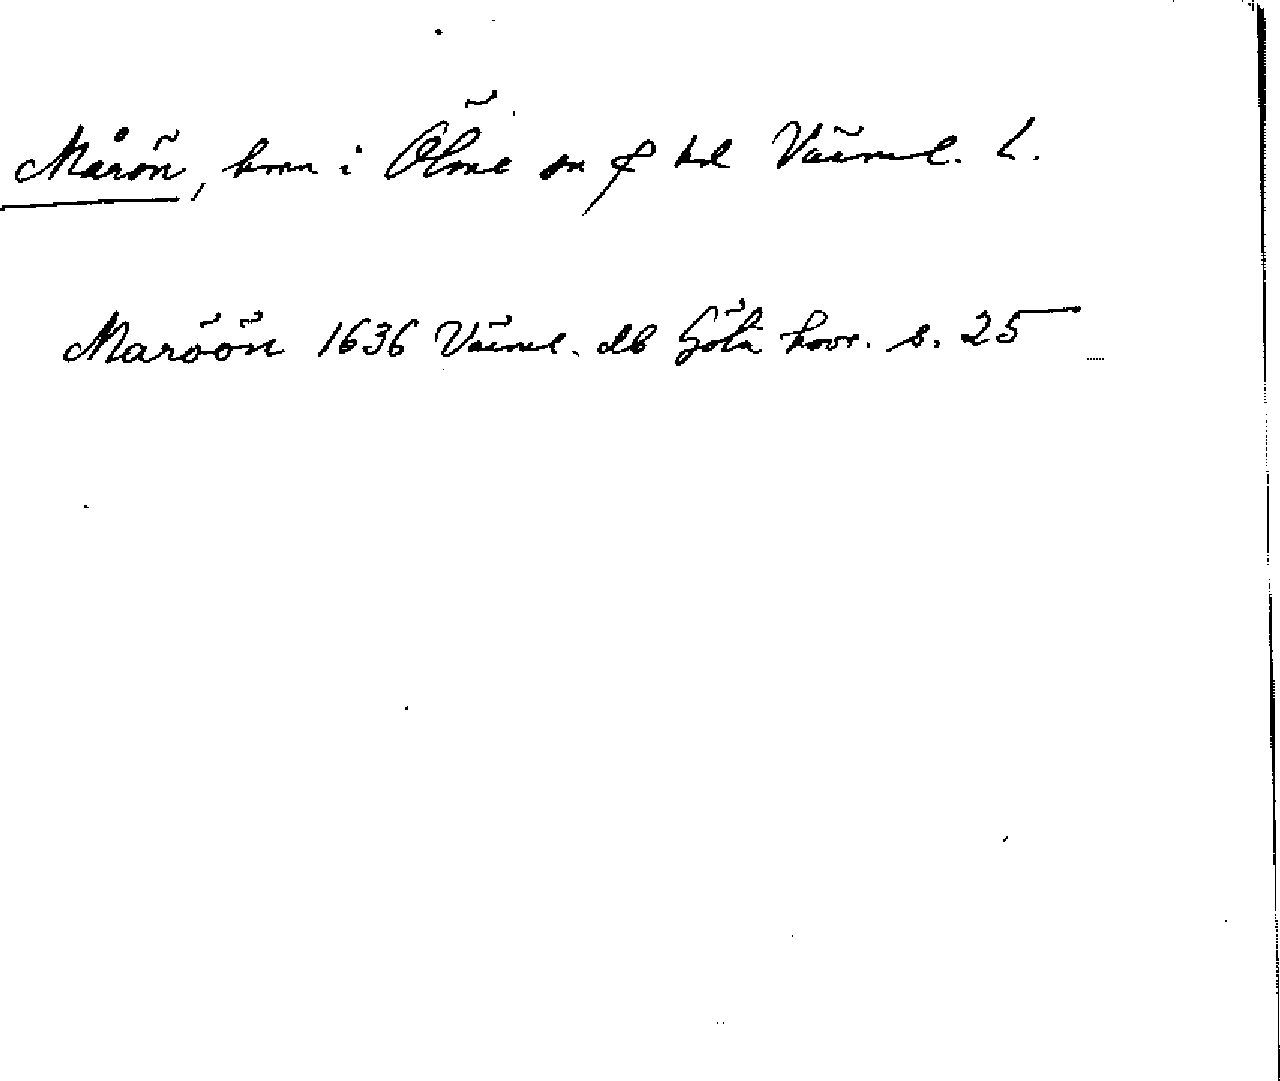 Mårön, hmn i Ölme sn o hd Värml. L.
Maröön 1636 Värml. db Göta hovr. s. 25